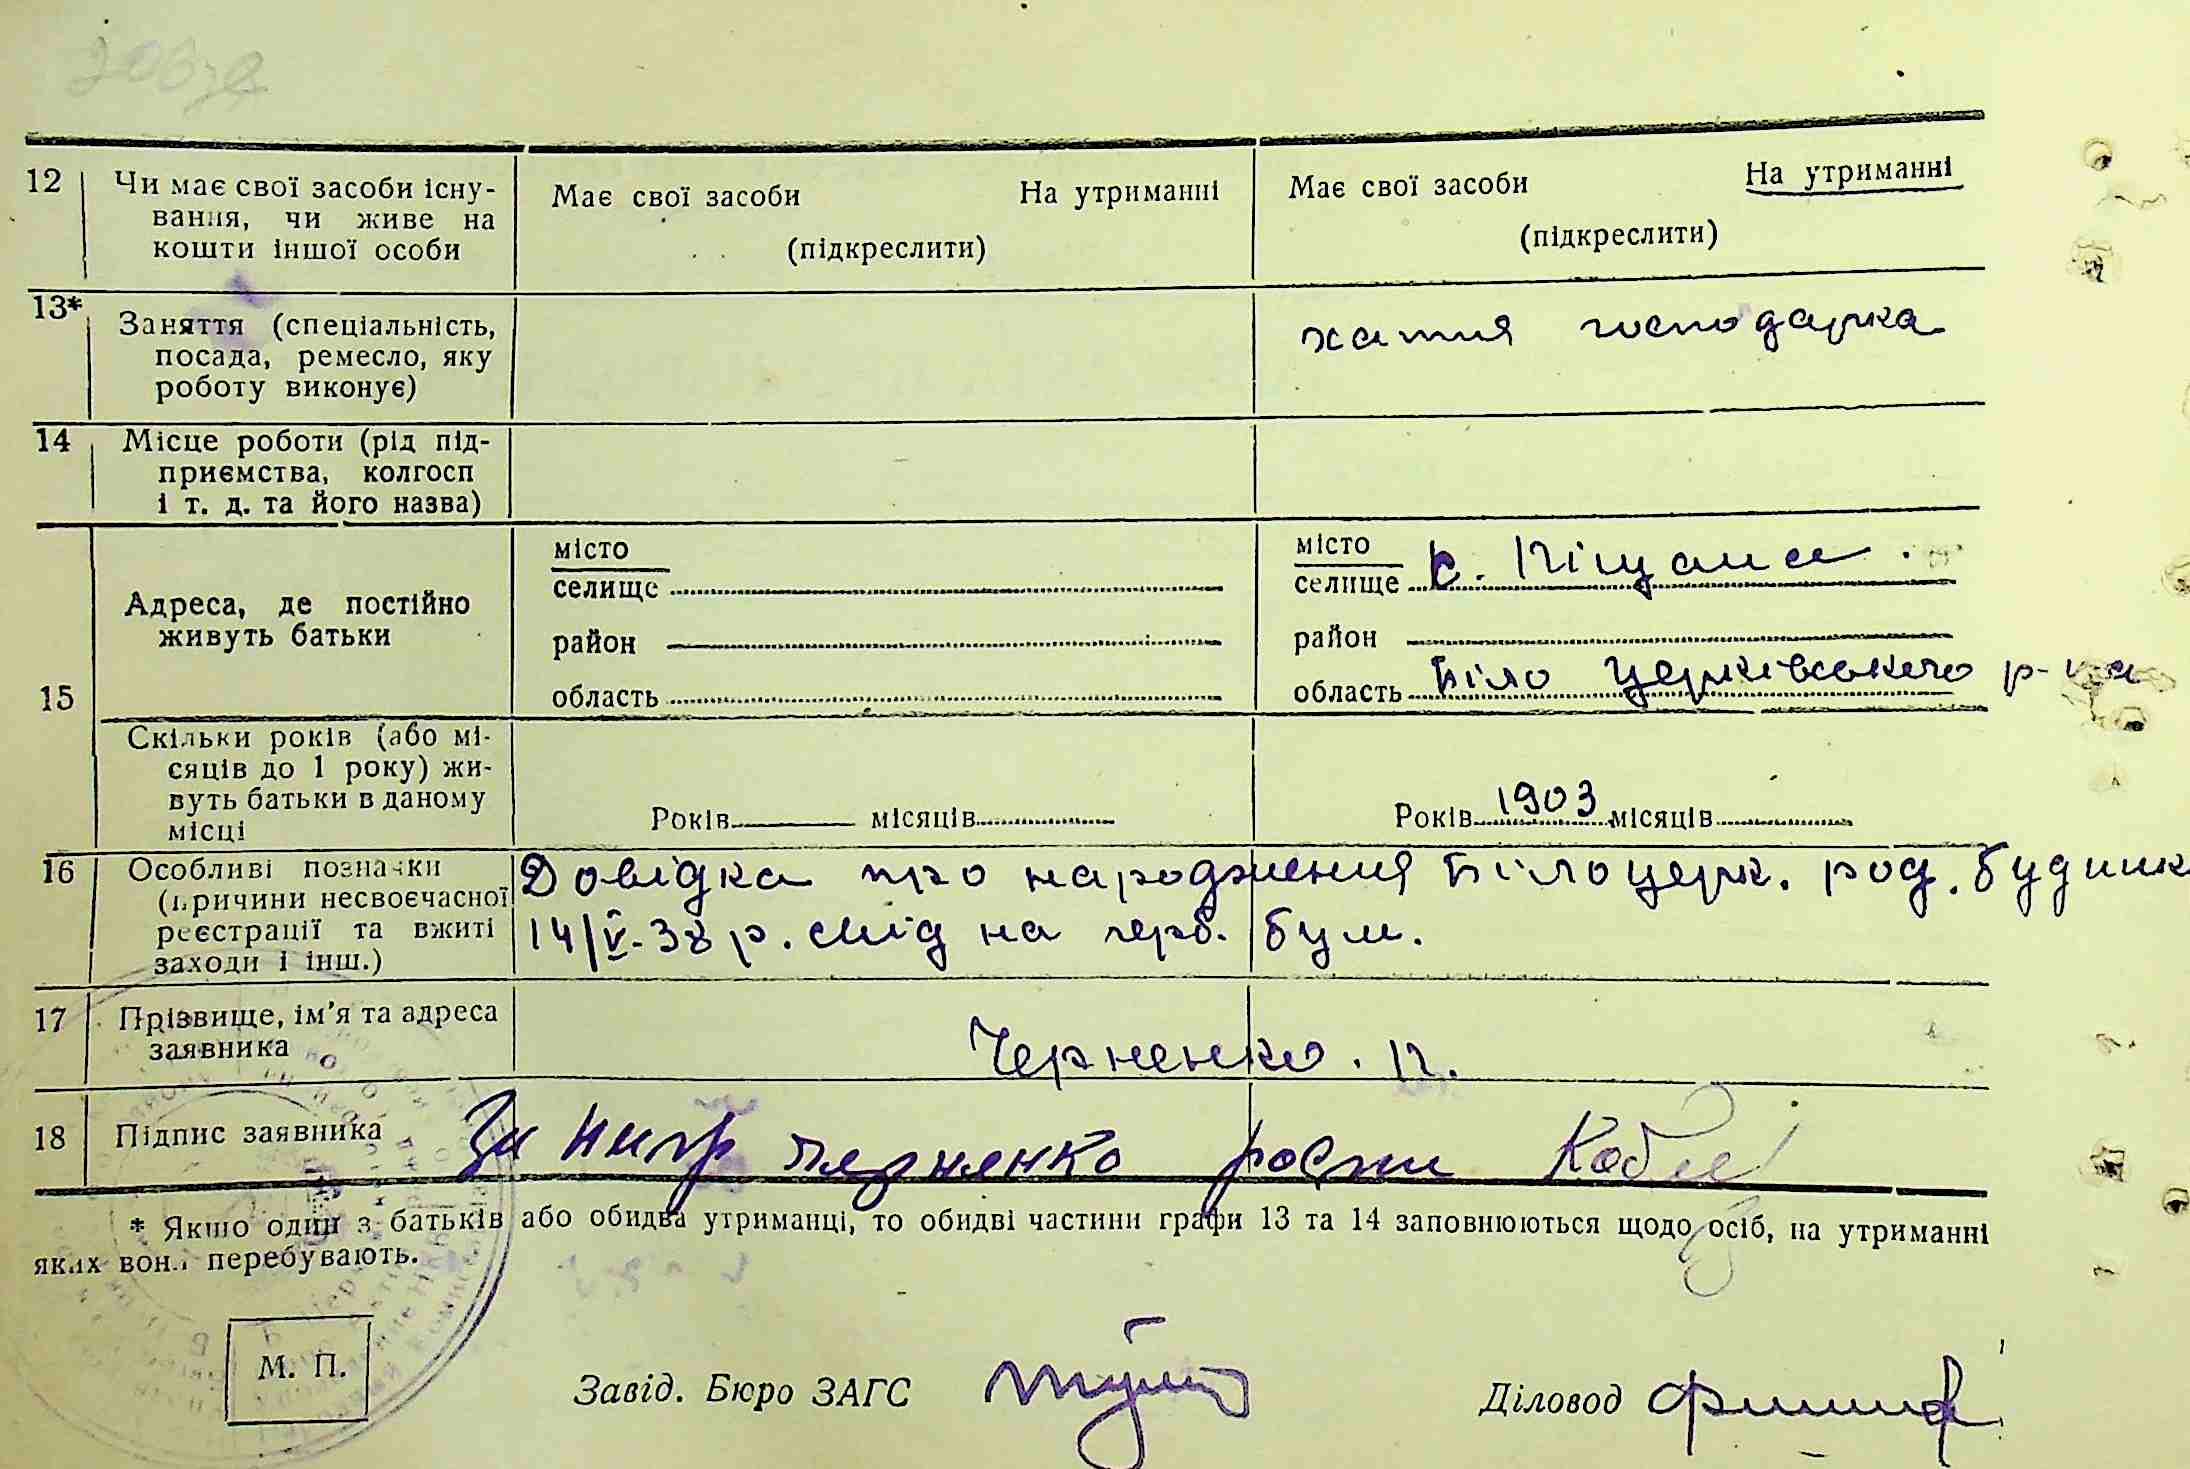 12 Чи має свої засоби існу-
вання, чи живе на
кошти іншої особи
Має свої засоби На утриманні
(підкреслити)
Має свої засоби На утриманні
(підкреслити)
13* Заняття (спеціальність,
посада, ремесло, яку
роботу виконує)
хатня господарка
14 Місце роботи (рід під-
приємства, колгосп
і т. д. та його назва)
15
Адреса, де постійно
живуть батьки
місто
селище
район
область
місто
селище с. Піщана.
район
область Біло Церківського р-на
Скільки років (або мі-
сяців до 1 року) жи-
вуть батьки в даному
місці
Років місяців
Років 1903 місяців
16 Особливі позначки
(причини несвоєчасної
реєстрації та вжиті
заходи і інш.)
Довідка про народження Білоцерк. род. будинк
14/V-38 р. на герб. бум.
17 Прізвище, ім'я та адреса
заявника
Черненко. П.
18 Підпис заявника
За Черненко
* Якшо один з батьків або обидва утриманці, то обидві частини графи 13 та 14 заповнюються щодо осіб, на утриманні
яких вони перебувають.
М. П.
Завід. Бюро ЗАГС
Діловод